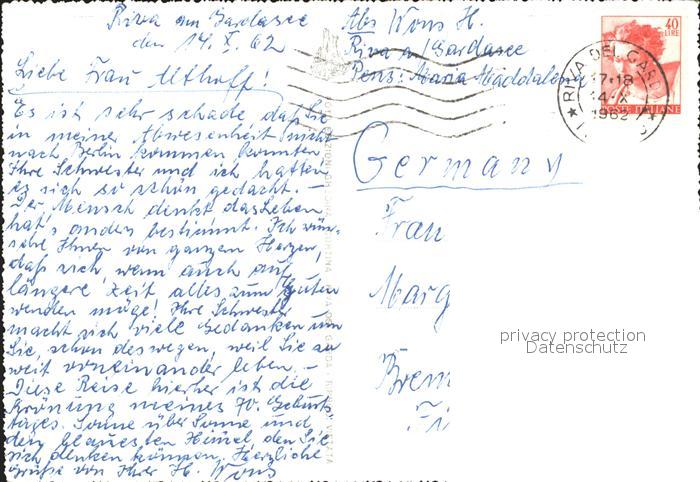 Riva am Gardasee
den 14. X. 62
Liebe Frau Althoff!
Es ist sehr schade, daß Sie
in meiner Abwesenheit nicht
nach Berlin kommen konnten
Ihre Schwester und ich hatten
es sich so schön gedacht. –
Der Mensch denkt das Leben
hat's anders bestimmt. Ich wün-
sche Ihnen von ganzem Herzen,
daß sich, wenn auch auf
längere Zeit alles zum Guten
wenden möge! Ihre Schwester
macht sich viele Gedanken um
Sie, schon deswegen, weil Sie so
weit voneinander leben. –
Diese Reise hierher ist die
Krönung meines 70. Geburts-
tages. Sonne über Sonne und
den blauesten Himel, den Sie
sich denken können. Herzliche
Grüße von Ihrer H. Wons
Abs Wons H.
Riva a/Gardasee
Pens: Maria Maddalena
40
LIRE
POSTE ITALIANE
RIVA DEL GARDA
17-18
14-X
1962
Germany
Frau
Marg
Brem
privacy protection
Datenschutz